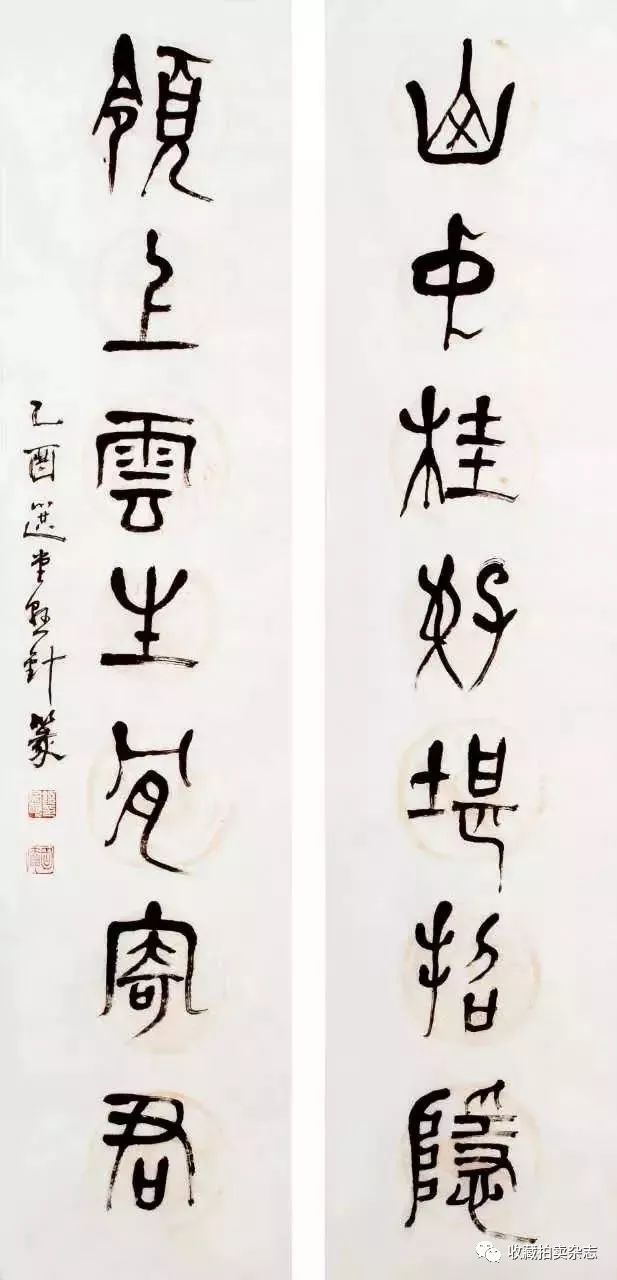 山中桂好堪招隱
領上雲生寄君
乙酉選堂懸針篆
收藏拍卖杂志